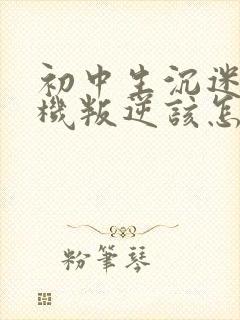 初中生沉迷
機叛逆該怎
粉筆琴